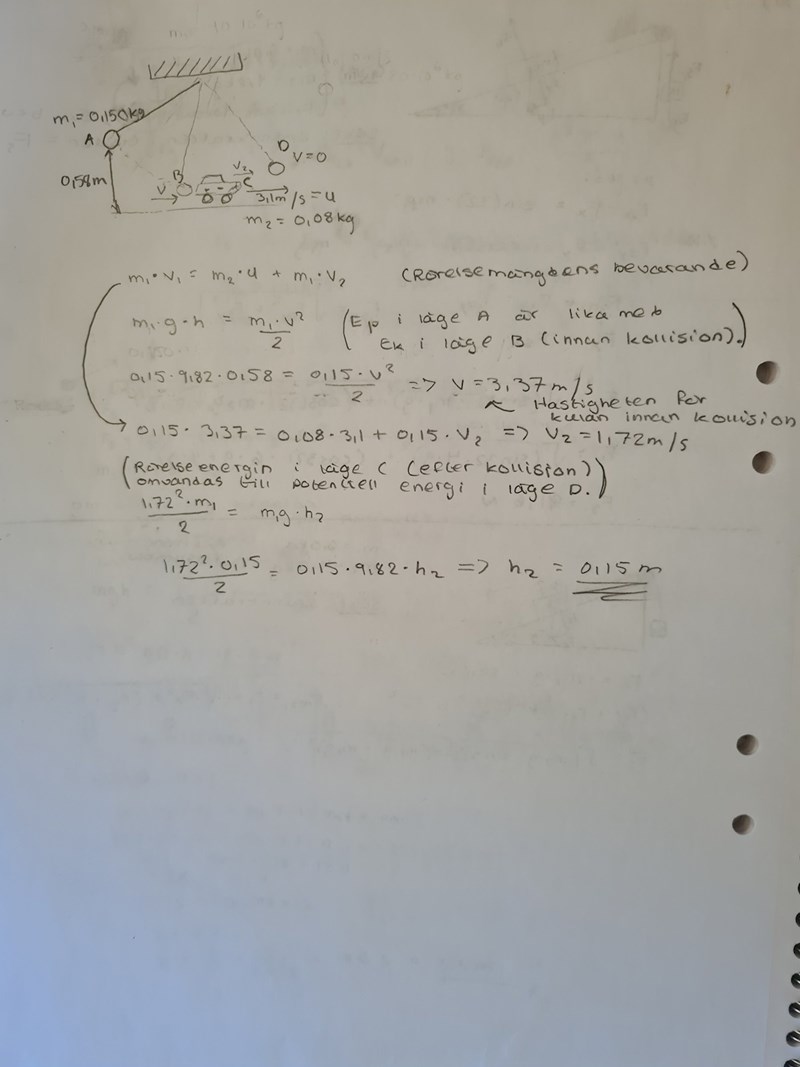 m₁ = 0,150kg
A
D
V=0
0,58m
B
V₂
C
V
3,1m/s = u
m₂ = 0,08kg
m₁ · V₁ = m₂ · u + m₁ · V₂ (Rörelsemängdens bevarande)
m₁ · g · h = m₁ · v² / 2 (Ep i läge A är lika med
Ek i läge B (innan kollision).)
0,15 · 9,82 · 0,58 = 0,15 · v² / 2 => V = 3,37 m/s
↖ Hastigheten för
kulan innan kollision
0,15 · 3,37 = 0,08 · 3,1 + 0,15 · V₂ => V₂ = 1,72 m/s
(Rörelseenergin i läge C (efter kollision)
omvandas till potentiell energi i läge D.)
1,72² · m₁ / 2 = m₁g · h₂
1,72² · 0,15 / 2 = 0,15 · 9,82 · h₂ => h₂ = 0,15 m